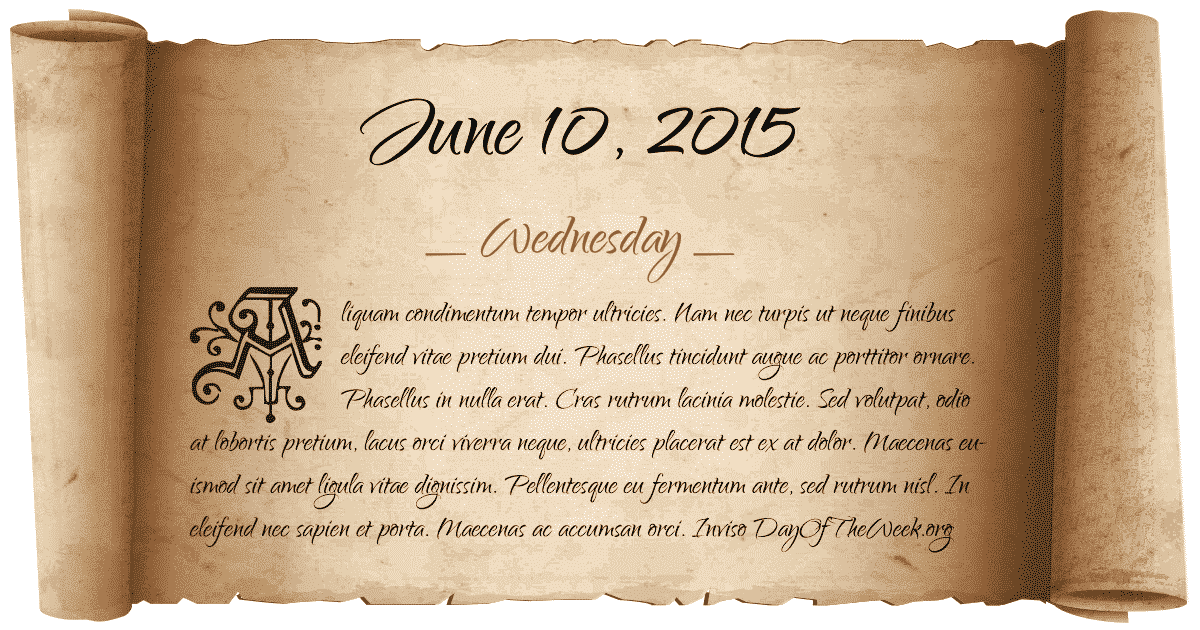 June 10, 2015
Wednesday
Aliquam condimentum tempor ultricies. Nam nec turpis ut neque finibus
eleifend vitae pretium dui. Phasellus tincidunt augue ac porttitor ornare.
Phasellus in nulla erat. Cras rutrum lacinia molestie. Sed volutpat, odio
at lobortis pretium, lacus orci viverra neque, ultricies placerat est ex at dolor. Maecenas eu-
ismod sit amet ligula vitae dignissim. Pellentesque eu fermentum ante, sed rutrum nisl. In
eleifend nec sapien et porta. Maecenas ac accumsan orci. Inviso DayOfTheWeek.org